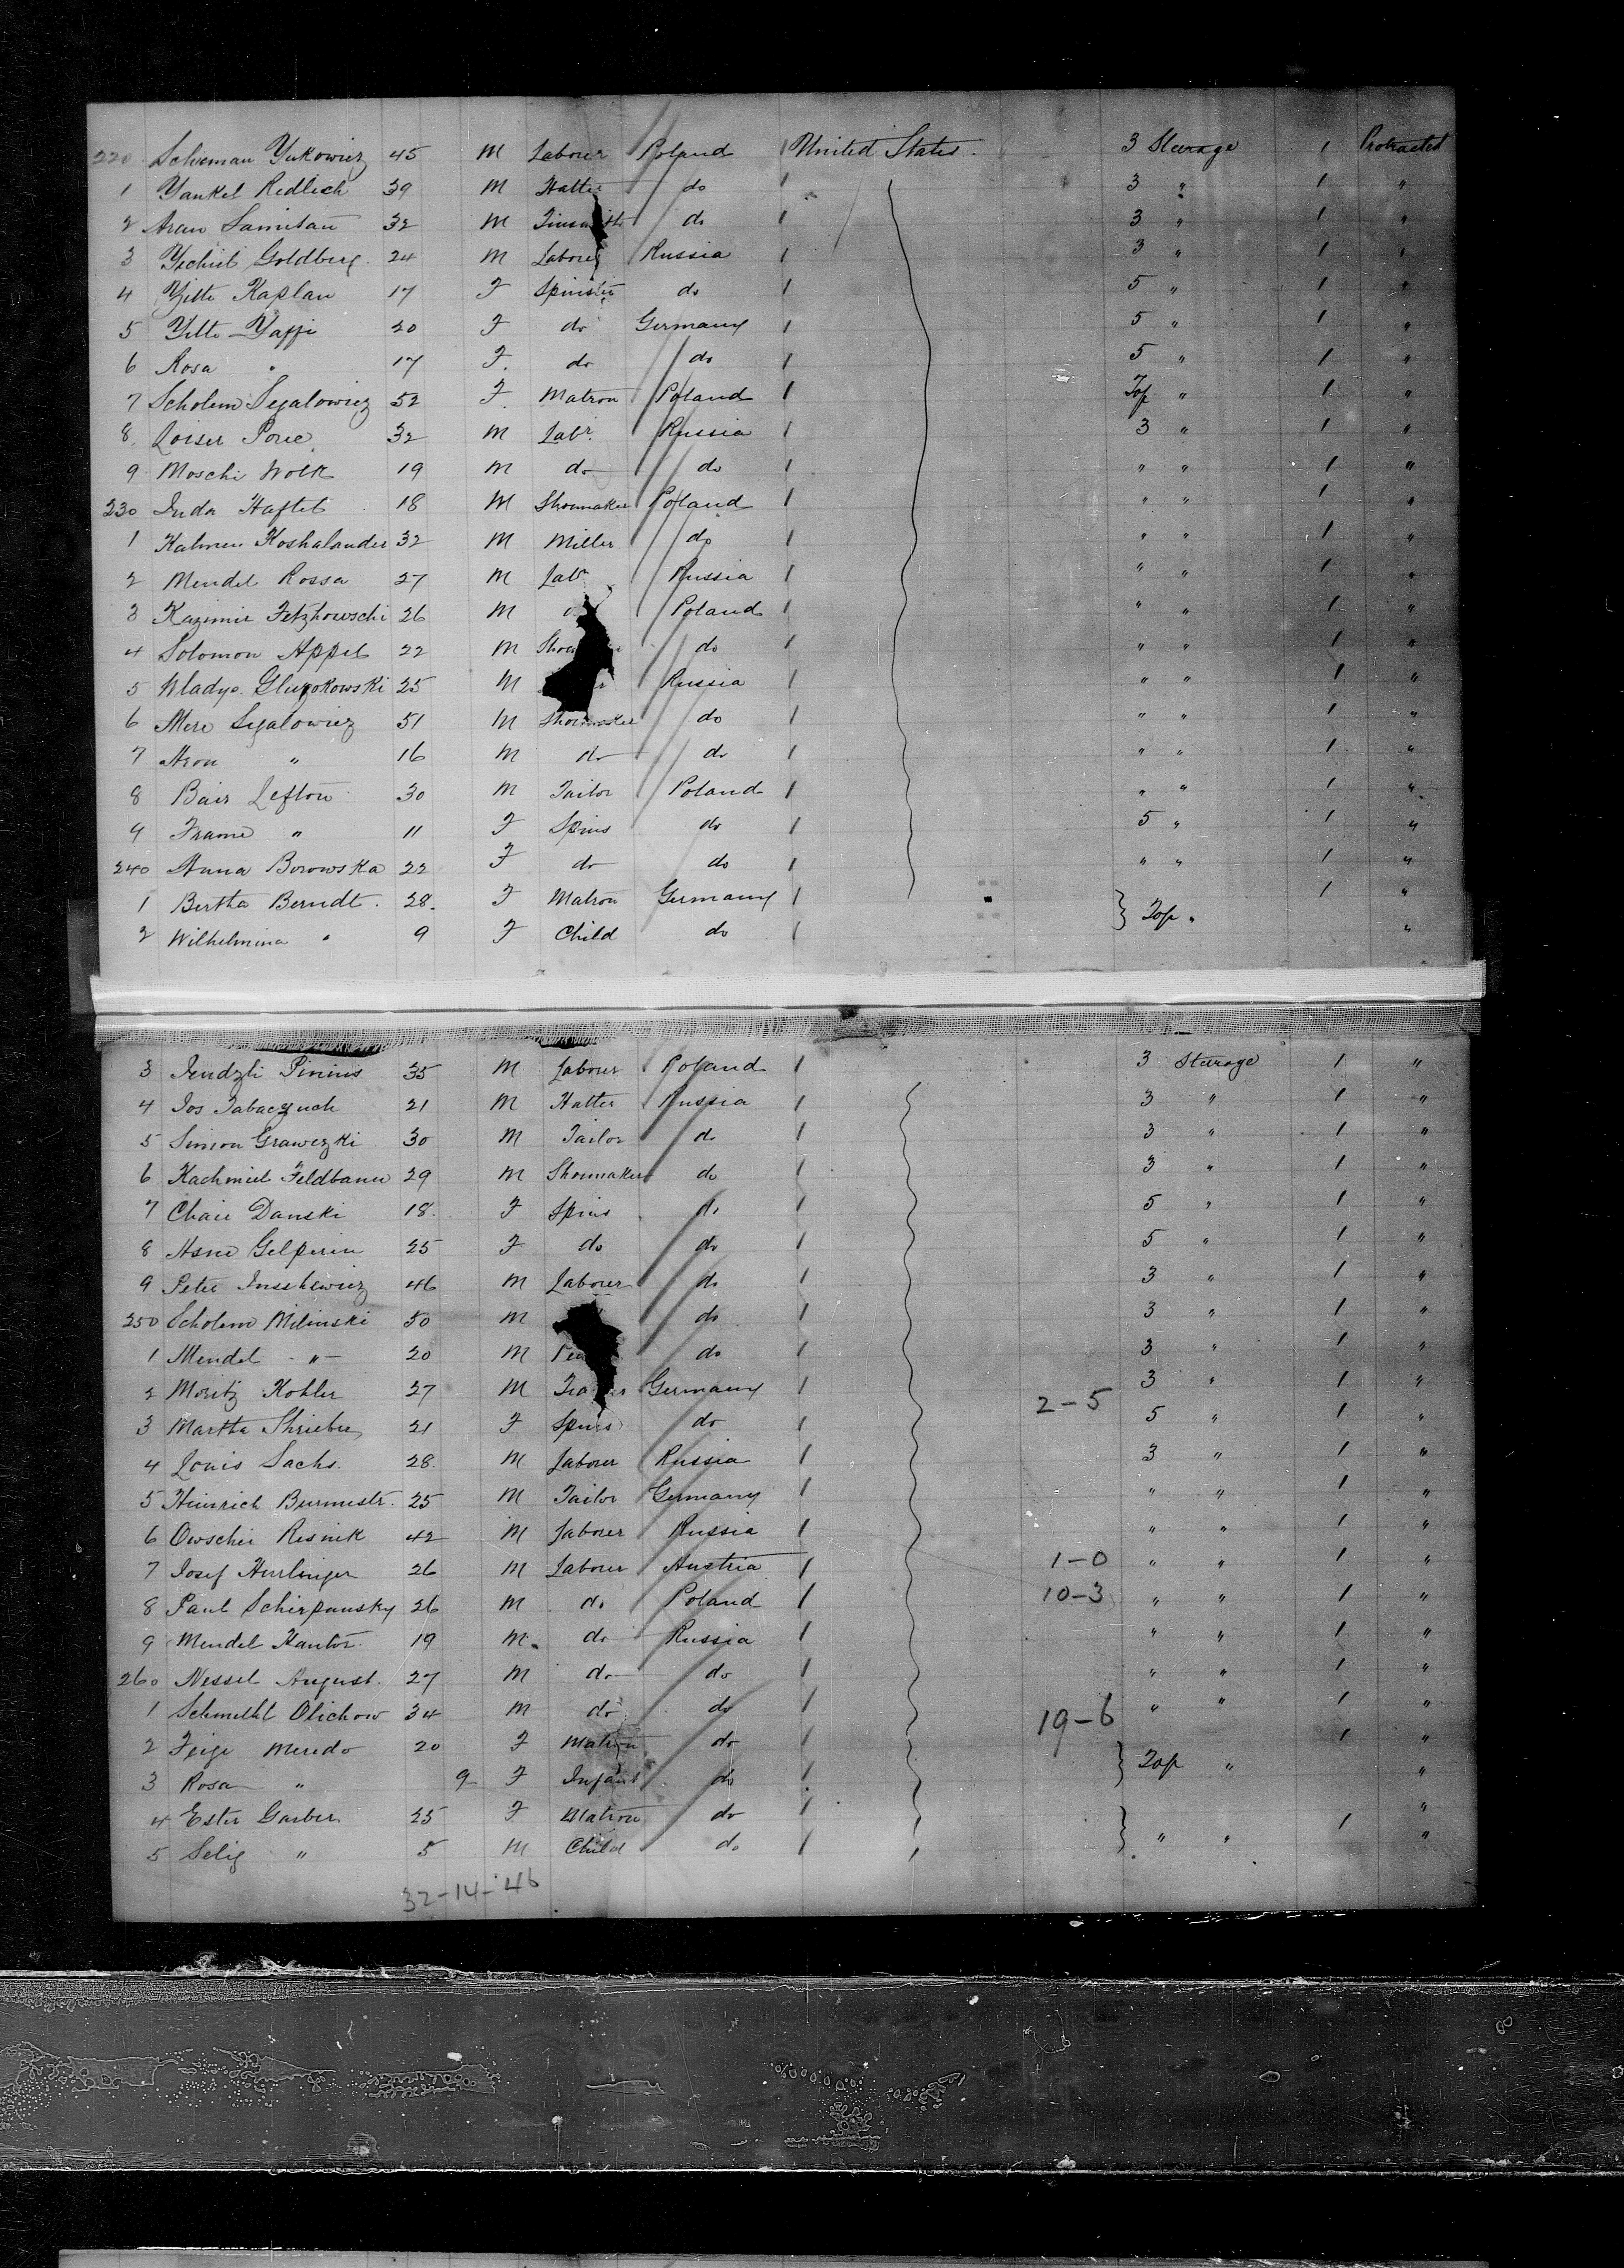 220 Schieman Yukowiez 45 M Labour Poland 1 United States. 3 Steerage 1 Protracted
1 Yankel Redlich 39 M Hatter do 1 3 " 1 "
2 Aran 32 M Tinsmith do 1 3 " 1 "
3 Yechiel Goldberg 24 M Labour Russia 1 3 " 1 "
4 Yitte Kaplan 17 F Spinster do 1 5 " 1 "
5 Yitte Yaffi 20 F do Germany 1 5 " 1 "
6 Rosa " 17 F. do do 1 5 " 1 "
7 Scholem Segalowiez 52 F. Matron Poland 1 Top " 1 "
8. Loiser 32 M Labr. Russia 1 3 " 1 "
9 Moschi Wolk 19 M do do 1 " " 1 "
230 Juda Haftel 18 M Shoemaker Poland 1 " " 1 "
1 Kalmen Koshalander 32 M Miller do 1 " " 1 "
2 Mendel Rossa 27 M Labr Russia 1 " " 1 "
3 Kazimir Fetzkowschi 26 M Poland 1 " " 1 "
4 Solomon Appel 22 M do 1 " " 1 "
5 Wladyo Glupokowski 25 M Russia 1 " " 1 "
6 Mere Segalowiez 51 M Shoemaker do 1 " " 1 "
7 Aron " 16 M do do 1 " " 1 "
8 Bair Lefton 30 M Tailor Poland 1 " " 1 "
9 Frame " 11 F Spins do 1 5 " 1 "
240 Anna Borowska 22 F do do 1 " " 1 "
1 Bertha Berndt. 28. F Matron Germany 1 } Top " 1 "
2 Wilhelmina " 9 F Child do 1 "
3 Jendzli Pinius 35 M Labour Poland 1 3 Steerage 1 "
4 Jos Tabaczuch 21 M Hatter Russia 1 3 " 1 "
5 Simon Grawezki 30 M Tailor do 1 3 " 1 "
6 Kachmiel Feldbaum 29 M Shoemaker do 1 3 " 1 "
7 Chaie Danski 18. F Spins do 1 5 " 1 "
8 Asne Gelperin 25 F do do 1 5 " 1 "
9 Peter 46 M Labourer do 1 3 " 1 "
250 Scholem Milinski 50 M do 1 3 " 1 "
1 Mendel - " - 20 M do 1 3 " 1 "
2 Moritz Kohler 27 M Germany 1 3 " 1 "
2-5
3 Martha Shrieber 21 F Spins do 1 5 " 1 "
4 Louis Sachs. 28. M Labour Russia 1 3 " 1 "
5 Hinrich Burmestr. 25 M Tailor Germany 1 " " 1 "
6 Owschei Resnik 42 M Labour Russia 1 " " 1 "
7 Josef Hurlinger 26 M Labour Austria 1 1-0 " " 1 "
8 Paul Schirpansky 26 M do Poland 1 10-3 " " 1 "
9 Mendel Kantor. 19 M. do Russia 1 " " 1 "
260 Nessel August. 27 M do do 1 " " 1 "
1 Schmelkl Olichow 34 M do do 1 " " 1 "
19-6
2 Feige Meredo 20 F Matron do 1 } Top " 1 "
3 Rosa " 9 F Infant do 1 "
4 Ester Garber 25 F Matron do 1 } " " 1 "
5 Selig " 5 M Child do 1 "
32-14-46